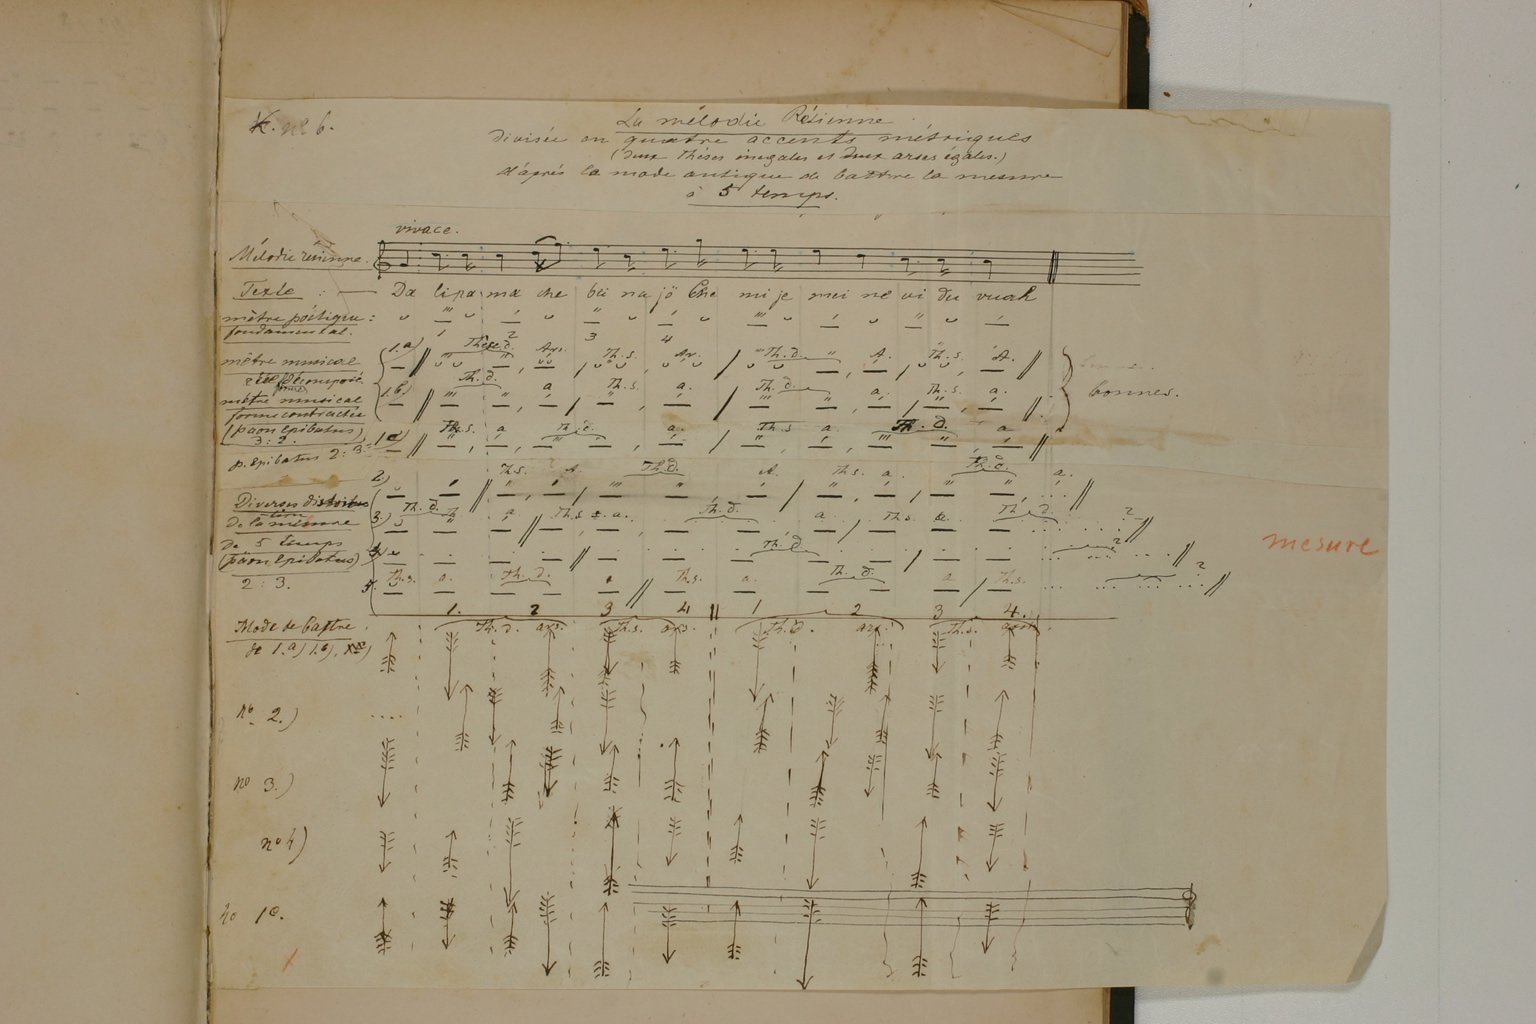 K. no 6.
La mélodie Résienne
divisée en quatre accents métriques
(deux Thèses inegales et deux arses égales.)
d'après la mode antique de battre la mesure
à 5 temps.
vivace.
Mélodie résienne.
Texte : Da lipa ma che bái na jö Che mi je mei ne vi du vuak
mètre poétique :
fondamental.
1 2 3 4
mètre musical
réel décomposé
1.a) Thèse d. Ars. Th. s. Ar. Th. d. A. Th. s. A.
mètre musical
forme contractée
1.b) Th. d. a Th. s. a. Th. d. a. Th. s. a.
bonnes.
(paon Epibatus)
3 : 2.
1c) Th. s. a Th. d. a. Th. s a. Th. d. a
p. Epibatus 2 : 3.
2.) Th. s. A. Th. d. A. Th. s. a. Th. d. a.
Diverses distribu
tion
de la mesure
3.) Th. d. a Th. s. a. Th. d. a Th. s. a. Th. d. ?
de 5 temps
(paon Epibatus)
2 : 3.
4. Th. d. ?
5. Th. s. a. Th. d. a Th. s. a. Th. d. a Th. s. ?
mesure
1. 2 3 4 1 2 3 4.
Mode de battre
de 1.a) 1.b),
Th. d. ars. Th. s. ars. Th. d. ars. Th. s. ars.
no 2.)
no 3.)
no 4)
no 1c.